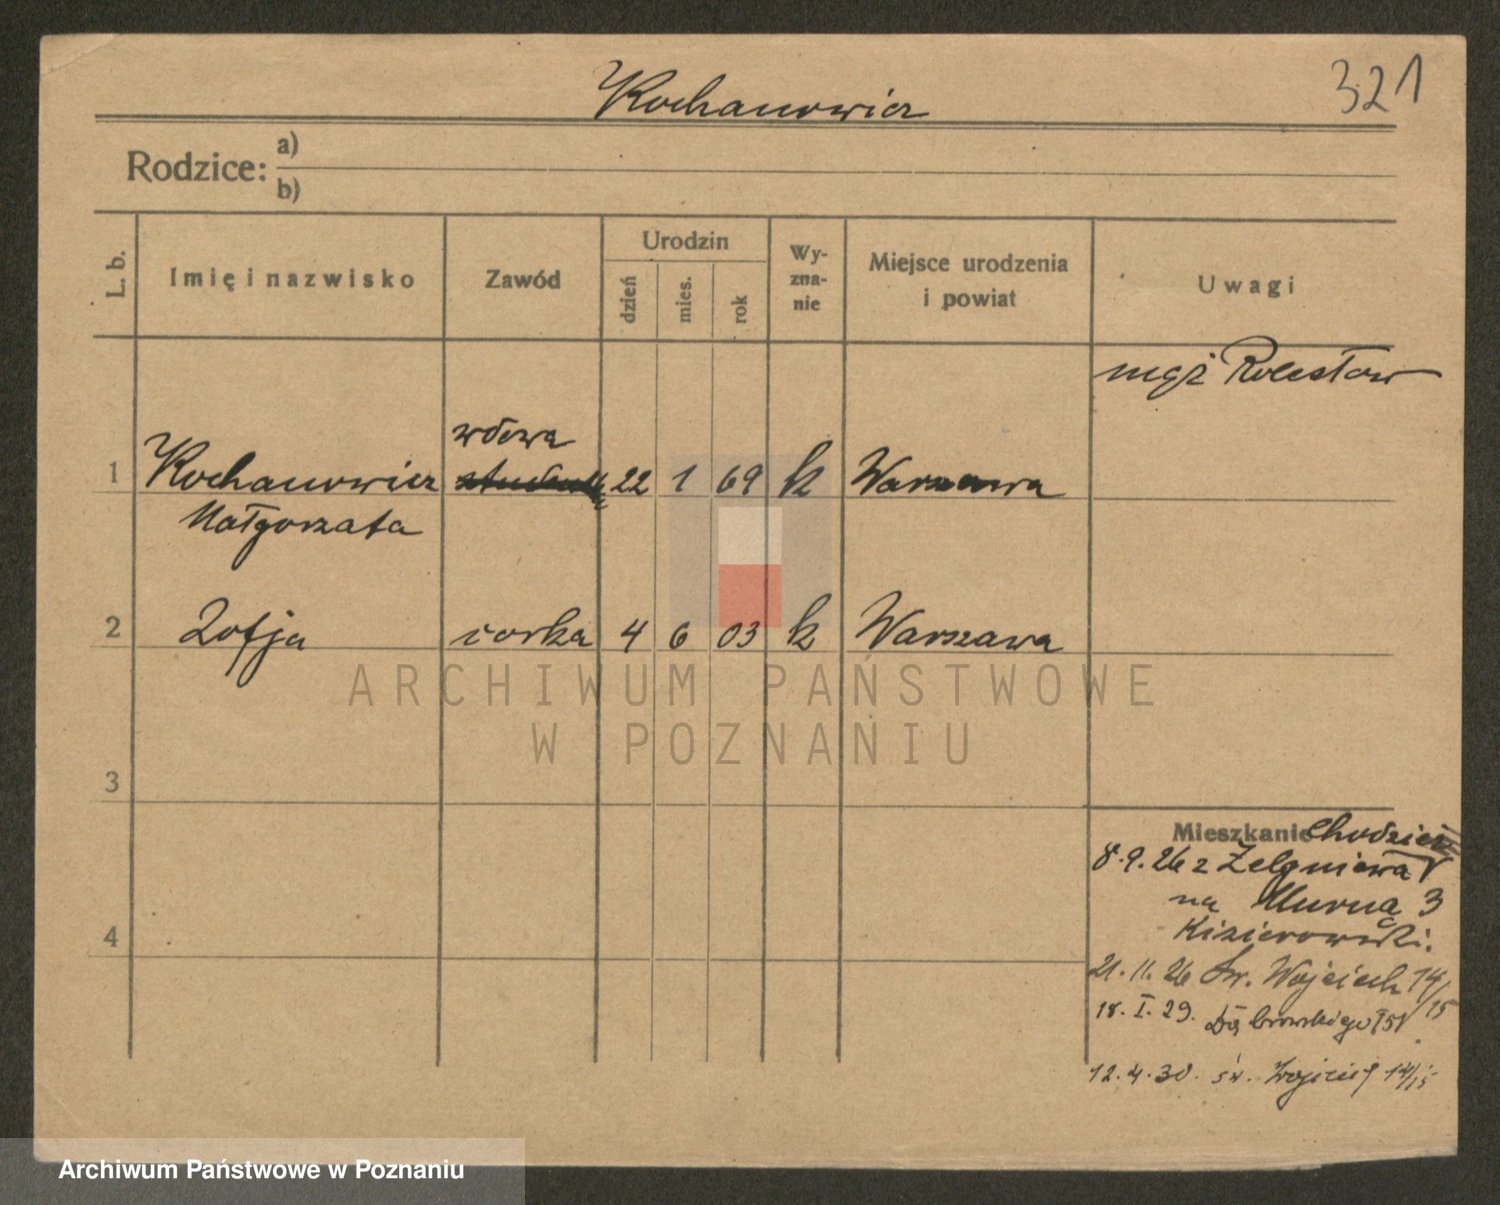 Kochanowicz
321
Rodzice:
a)
b)
L. b.
Imię i nazwisko
Zawód
Urodzin
dzień
mies.
rok
Wy-
zna-
nie
Miejsce urodzenia
i powiat
Uwagi
mąż Bolesław
wdowa
1 Kochanowicz 22 1 69 k Warszawa
Małgorzata
2 Zofja corka 4 6 03 k Warszawa
ARCHIWUM PAŃSTWOWE
W POZNANIU
3
Mieszkanie Chodzież
8.9.26 z Zelgniewa
na Murną 3
4
21.11.26 Św. Wojciech 14/15
18.I.29. Dąbrowskiego
12.4.30. św. Wojciech 14/15
Archiwum Państwowe w Poznaniu